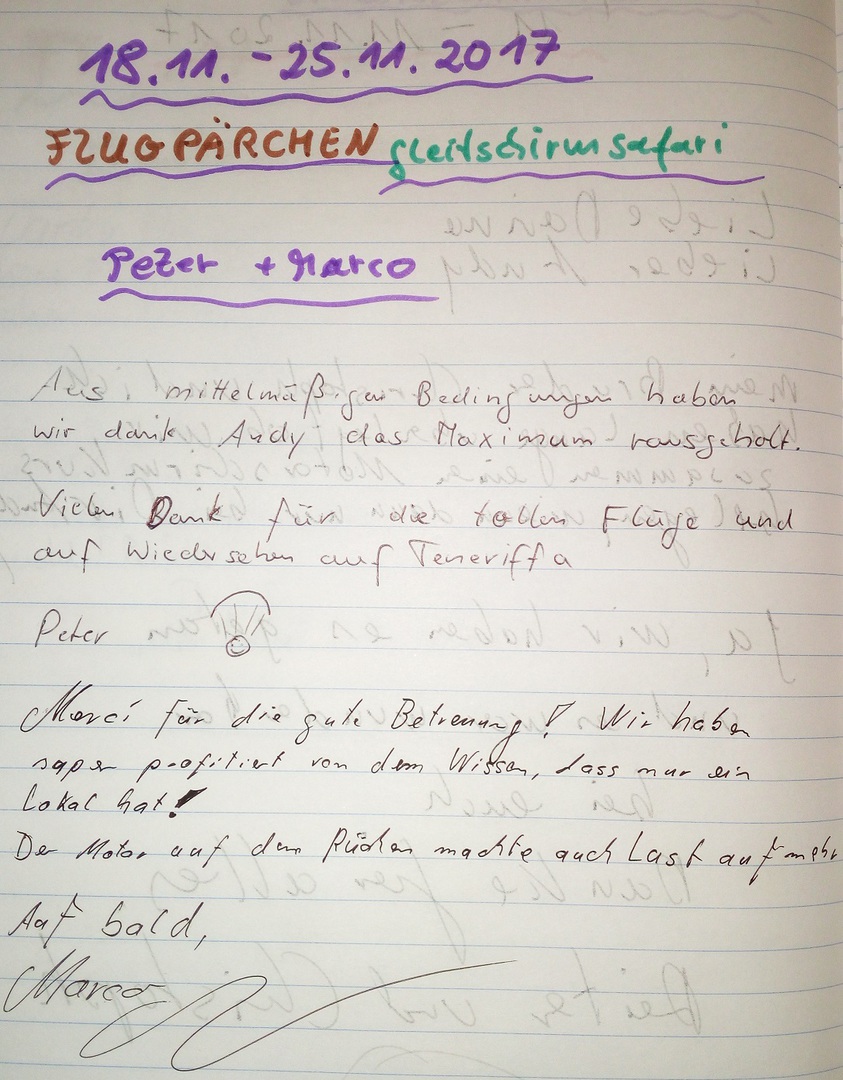 18.11. - 25.11.2017
FLUGPÄRCHEN gleitschirmsafari
Peter + Marco
Aus mittelmäßigen Bedingungen haben
wir dank Andy das Maximum rausgeholt.
Vielen Dank für die tollen Flüge und
auf Wiedersehen auf Teneriffa
Peter
Merci für die gute Betreuung! Wir haben
super profitiert von dem Wissen, dass nur ein
Lokal hat!
Der Motor auf dem Rücken machte auch Lust auf mehr
Auf bald,
Marco